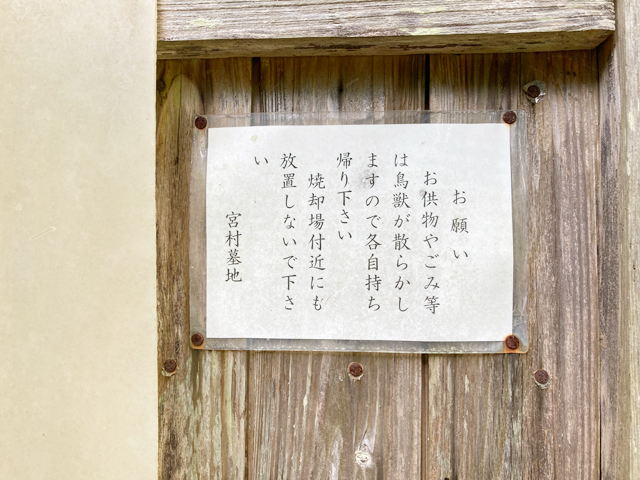 お願い
お供物やごみ等
は鳥獣が散らかし
ますので各自持ち
帰り下さい
焼却場付近にも
放置しないで下さ
い
宮村墓地